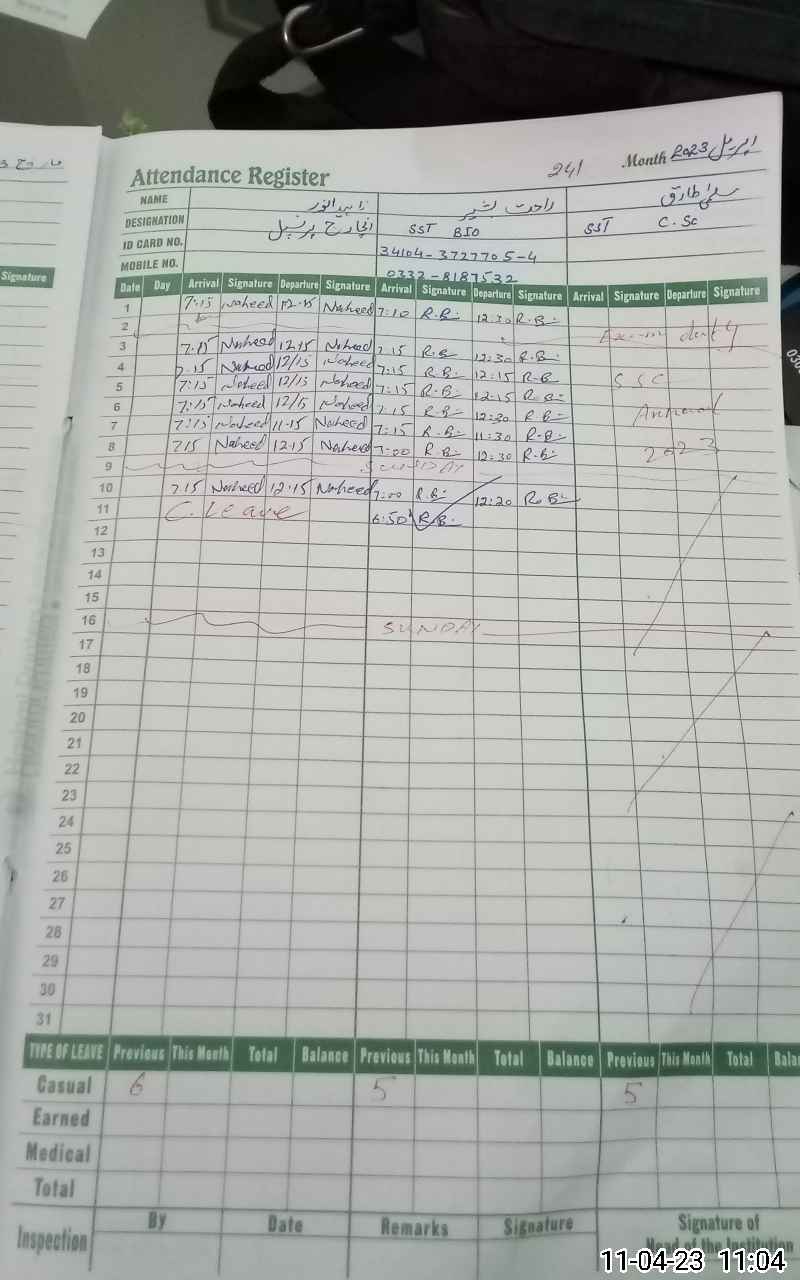 مارچ
241 Month اپریل 2023
Attendance Register
NAME راحت بشیر سلمیٰ طارق
DESIGNATION انچارج پرنسپل SST BIO SST C.Sc
ID CARD NO. 34104-3727705-4
MOBILE NO. 0332-8187532
Signature
Date Day Arrival Signature Departure Signature Arrival Signature Departure Signature Arrival Signature Departure Signature
1 7:15 Naheed 12:15 Naheed 7:10 R.B 12:30 R.B
2 Exam duty
3 7:15 Naheed 12:15 Naheed 7:15 R.B 12:30 R.B
4 7:15 Naheed 12/15 Naheed 7:15 R.B 12:15 R.B SSC
5 7:15 Naheed 12/15 Naheed 7:15 R.B 12:15 R.B
6 7:15 Naheed 12/15 Naheed 7:15 R.B 12:30 R.B Annual
7 7:15 Naheed 11-15 Naheed 7:15 R.B 11:30 R.B
8 7:15 Naheed 12:15 Naheed 7:00 R.B 12:30 R.B 2023
9 SUNDAY
10 7:15 Naheed 12:15 Naheed 7:00 R.B 12:20 R.B
11 C. Leave 6:50 R.B
12
13
14
15
16 SUNDAY
17
18
19
20
21
22
23
24
25
26
27
28
29
30
31
TYPE OF LEAVE Previous This Month Total Balance Previous This Month Total Balance Previous This Month Total Bala
Casual 6 5 5
Earned
Medical
Total
Inspection By Date Remarks Signature Signature of
Head of the Institution
11-04-23 11:04